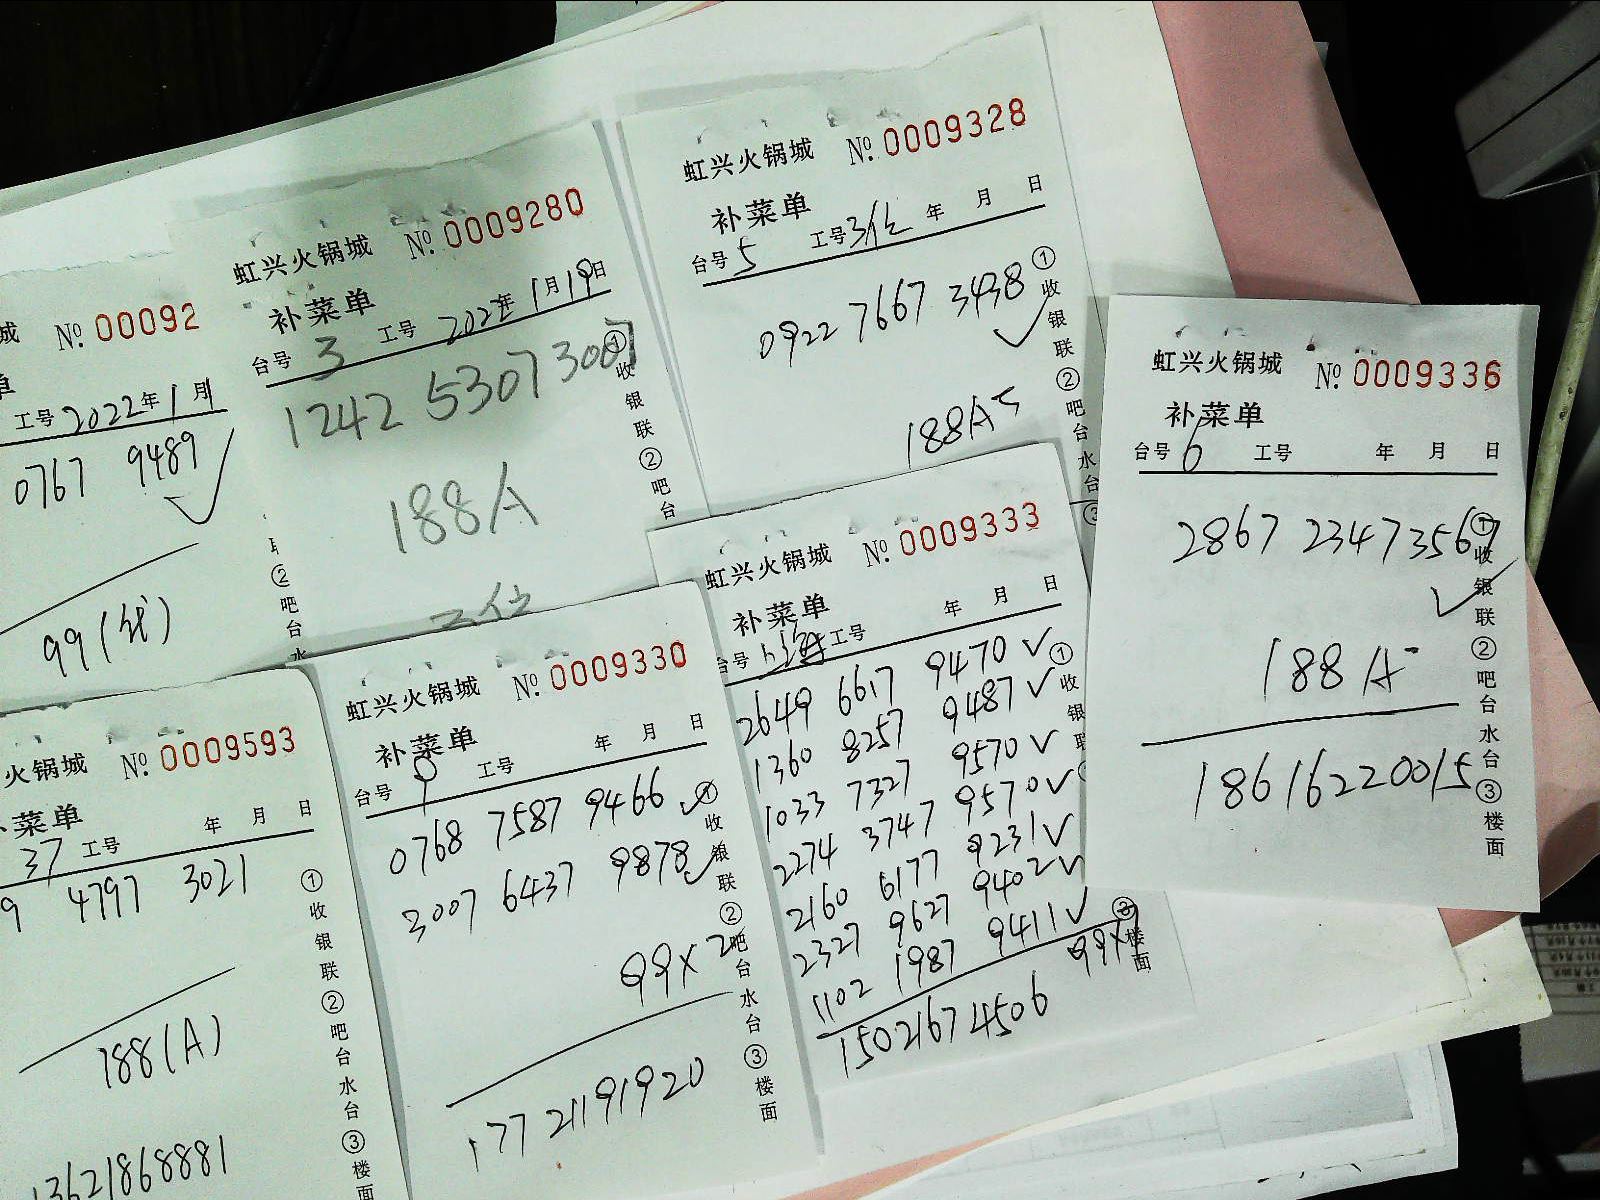 城 No. 00092
单
工号 2022年 1月
0767 9489 ✓
99(优)
虹兴火锅城 No. 0009280
补菜单
台号 3 工号 2022年 1月19日
1242 5307 3007
188A
三位
①收银联②吧台
虹兴火锅城 No. 0009328
补菜单
台号 5 工号 3位 年 月 日
0922 7667 3438 ✓
188A
①收银联②吧台水台③
虹兴火锅城 No. 0009336
补菜单
台号 6 工号 年 月 日
2867 2347 3567 ✓
188A
18616220015
①收银联②吧台水台③楼面
火锅城 No. 0009593
补菜单
37 工号 年 月 日
9 4797 3021
188(A)
13621868881
①收银联②吧台水台③楼面
虹兴火锅城 No. 0009330
补菜单
台号 9 工号 年 月 日
0768 7587 9466 ✓
3007 6437 9878 ✓
99×2
17721191920
①收银联②吧台水台③楼面
虹兴火锅城 No. 0009333
补菜单
台号 上海 工号 年 月 日
2649 6617 9470 ✓
1360 8257 9487 ✓
1033 7327 9570 ✓
2274 3747 9570 ✓
2160 6177 9231 ✓
2327 9627 9402 ✓
1102 1987 9411 ✓
99×7
15021674506
①收银联③楼面